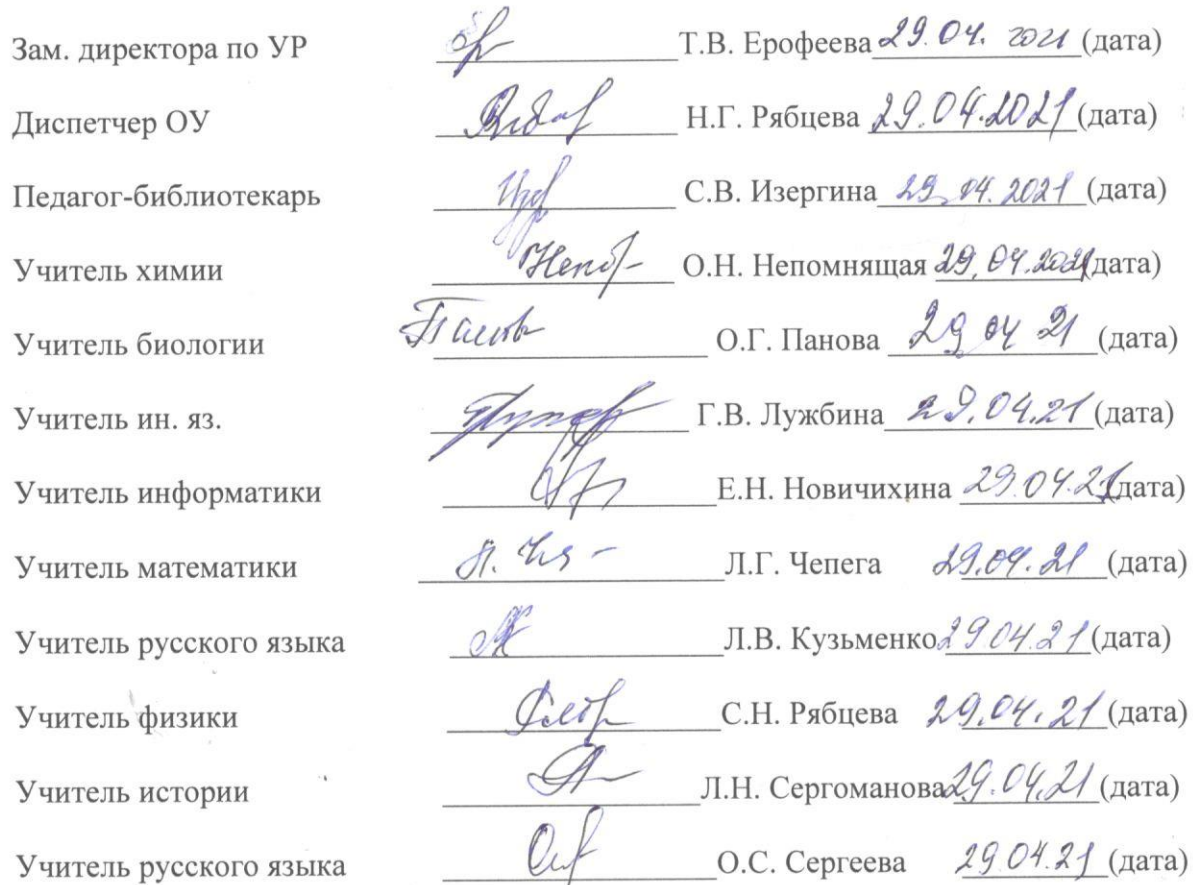 Зам. директора по УР Т.В. Ерофеева 29.04. 2021 (дата)
Диспетчер ОУ Н.Г. Рябцева 29.04.2021 (дата)
Педагог-библиотекарь С.В. Изергина 29.04.2021 (дата)
Учитель химии О.Н. Непомнящая 29.04.2021 (дата)
Учитель биологии О.Г. Панова 29 04 21 (дата)
Учитель ин. яз. Г.В. Лужбина 29.04.21 (дата)
Учитель информатики Е.Н. Новичихина 29.04.21 (дата)
Учитель математики Л.Г. Чепега 29.04.21 (дата)
Учитель русского языка Л.В. Кузьменко 29 04 21 (дата)
Учитель физики С.Н. Рябцева 29.04.21 (дата)
Учитель истории Л.Н. Сергоманова 29.04.21 (дата)
Учитель русского языка О.С. Сергеева 29.04.21 (дата)